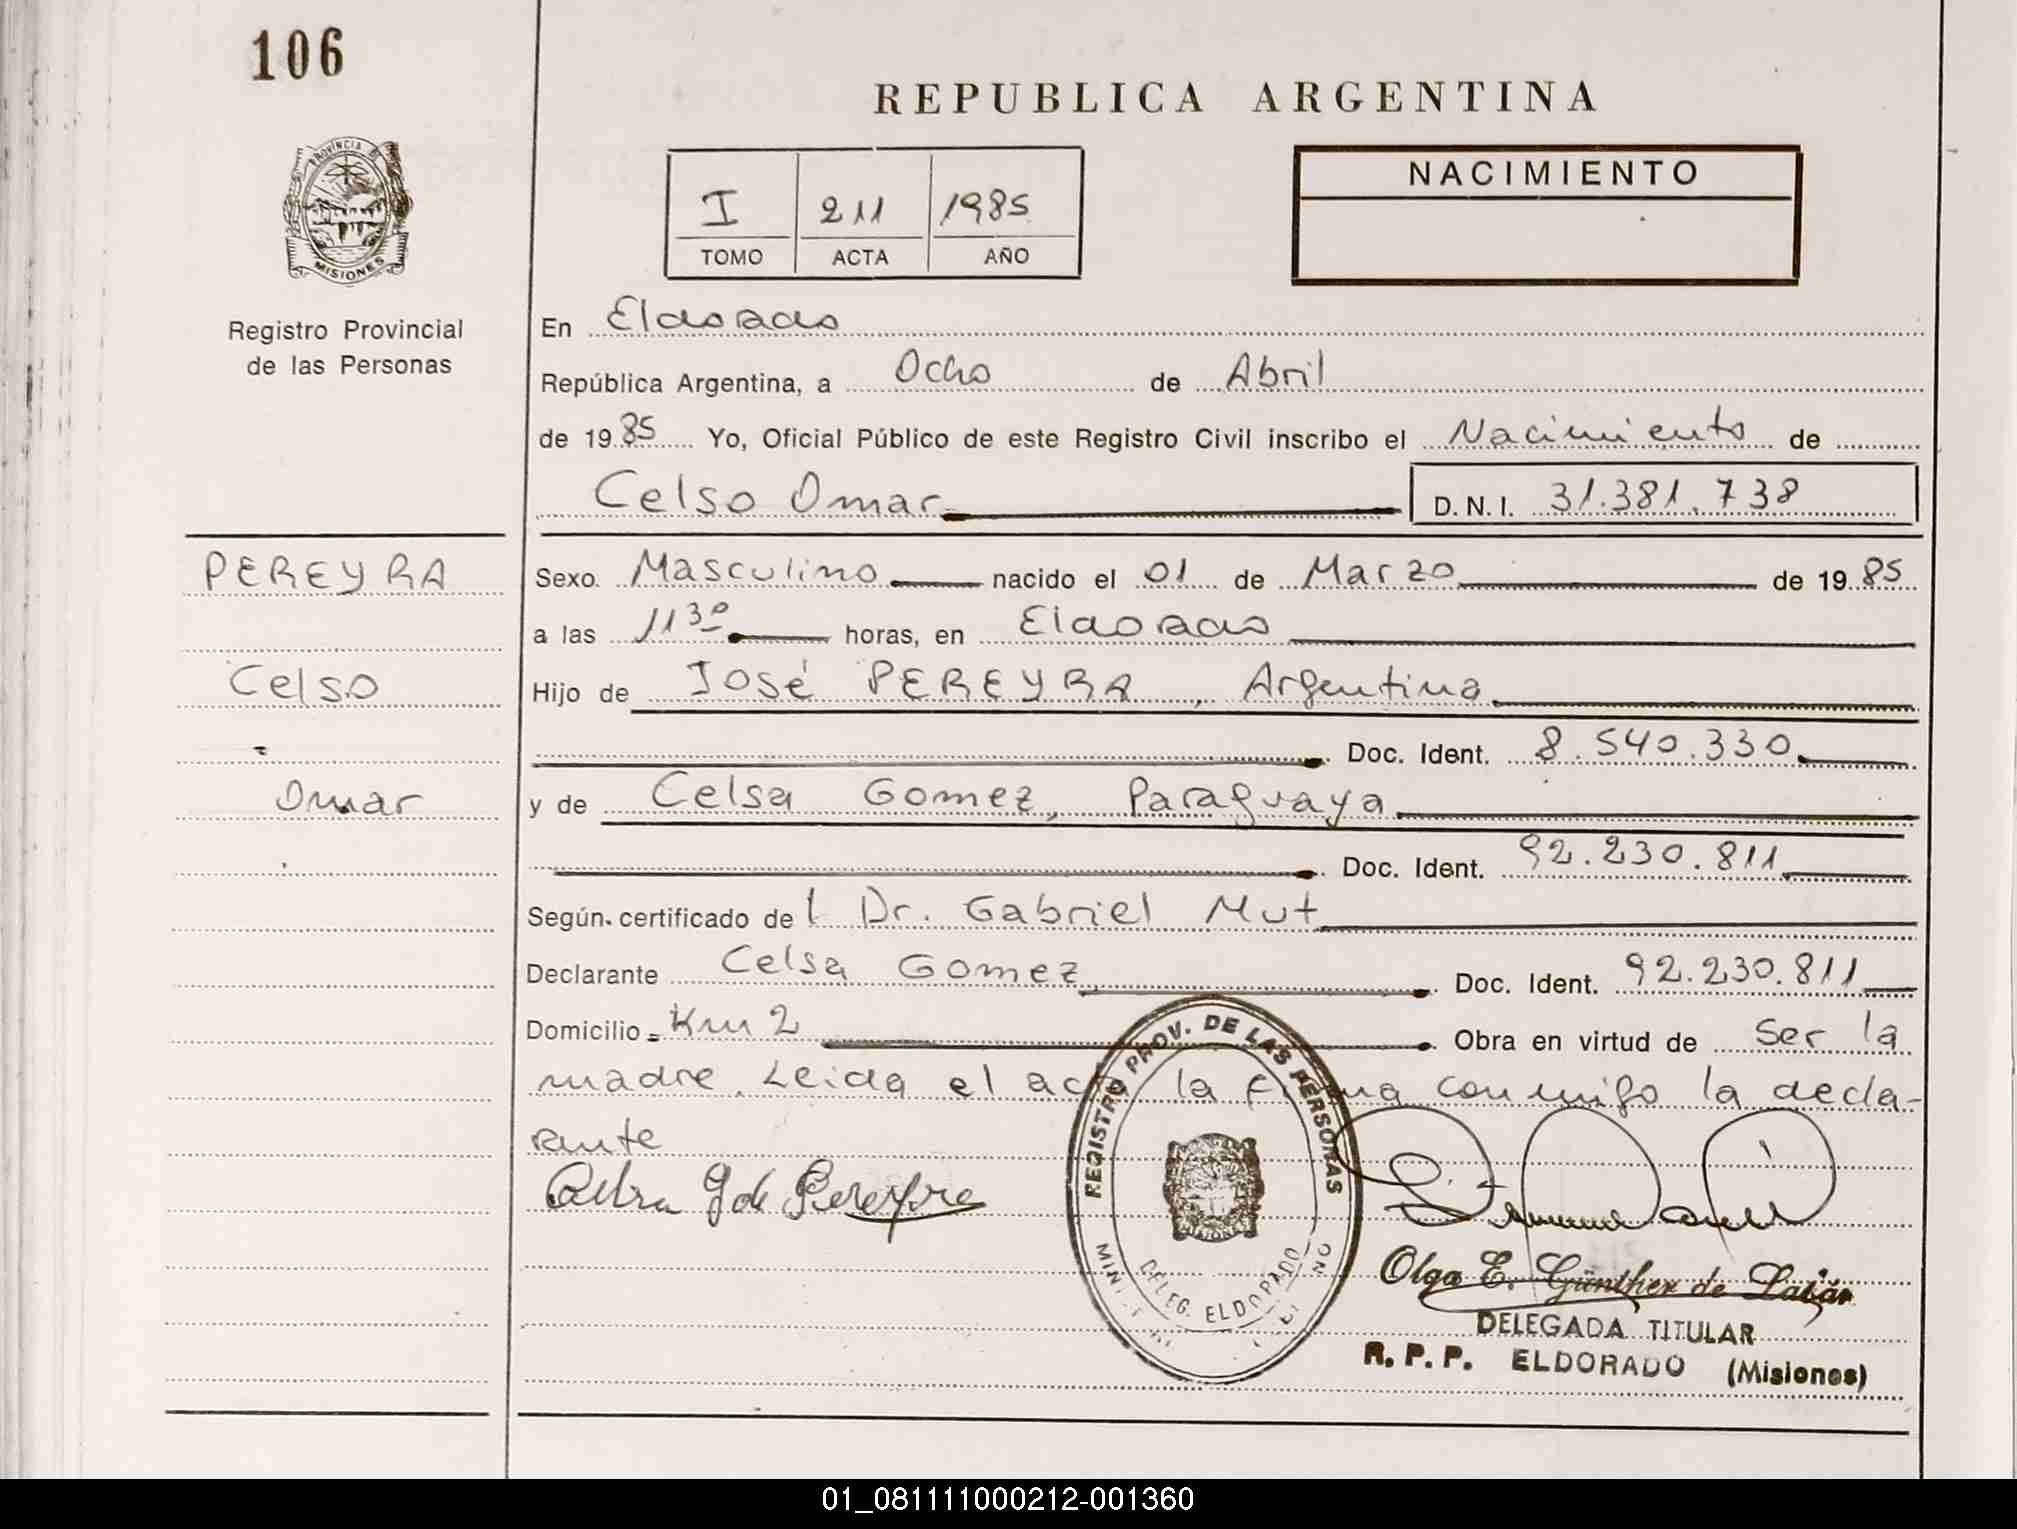 106
REPUBLICA ARGENTINA
PROVINCIA DE
MISIONES
Registro Provincial
de las Personas
I 211 1985
TOMO ACTA AÑO
NACIMIENTO
En Eldorado
República Argentina, a Ocho de Abril
de 1985 Yo, Oficial Público de este Registro Civil inscribo el Nacimiento de
Celso Omar D.N.I. 31.381.738
PEREYRA
Celso
Omar
Sexo. Masculino nacido el 01 de Marzo de 1985
a las 11 30 horas, en Eldorado
Hijo de José PEREYRA, Argentina
Doc. Ident. 8.540.330
y de Celsa Gomez, Paraguaya
Doc. Ident. 92.230.811
Según certificado de l Dr. Gabriel Mut
Declarante Celsa Gomez Doc. Ident. 92.230.811
Domicilio Km 2 Obra en virtud de Ser la
madre. Leida el acta la firma conmigo la decla-
rante
G de Pereyra
REGISTRO PROV. DE LAS PERSONAS
DELEG. ELDORADO
Olga E. Günther de
DELEGADA TITULAR
R. P. P. ELDORADO (Misiones)
01_081111000212-001360